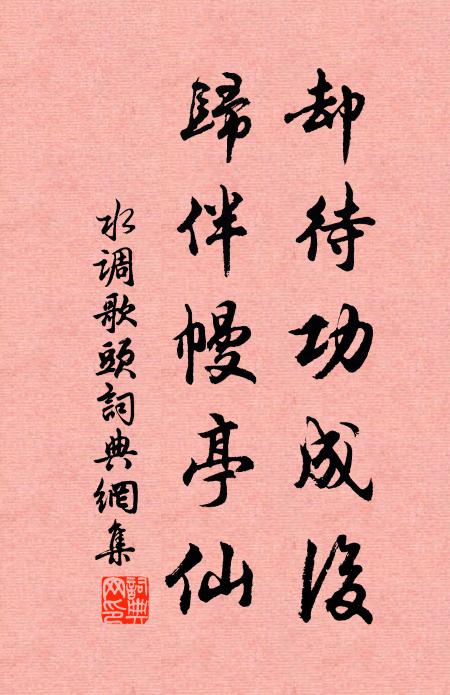 却待功成後
歸伴幔亭仙
水调歌頭詞典網集
詞典网印